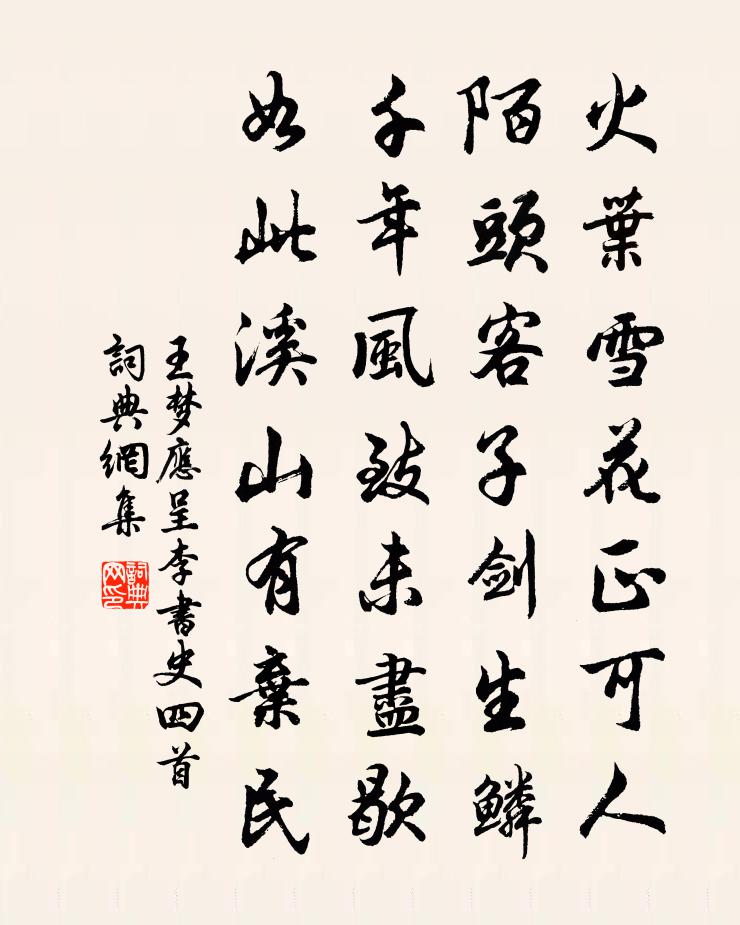 火葉雪花正可人
陌頭客子劍生鱗
千年風致未盡歇
如此溪山有棄民
王梦應呈李書史四首
詞典網集
詞典网印